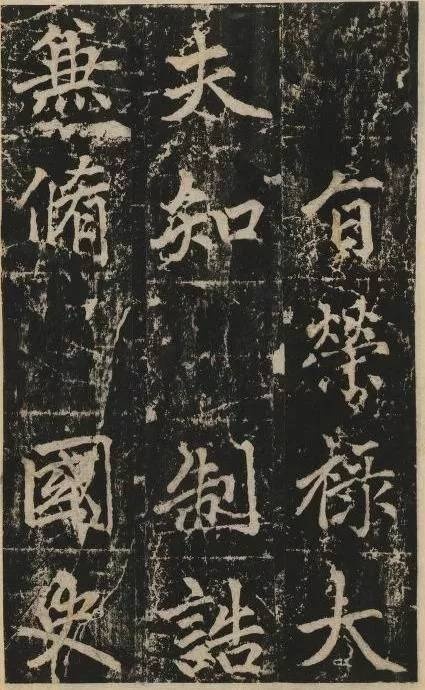 旨榮祿大
夫知制誥
兼脩國史